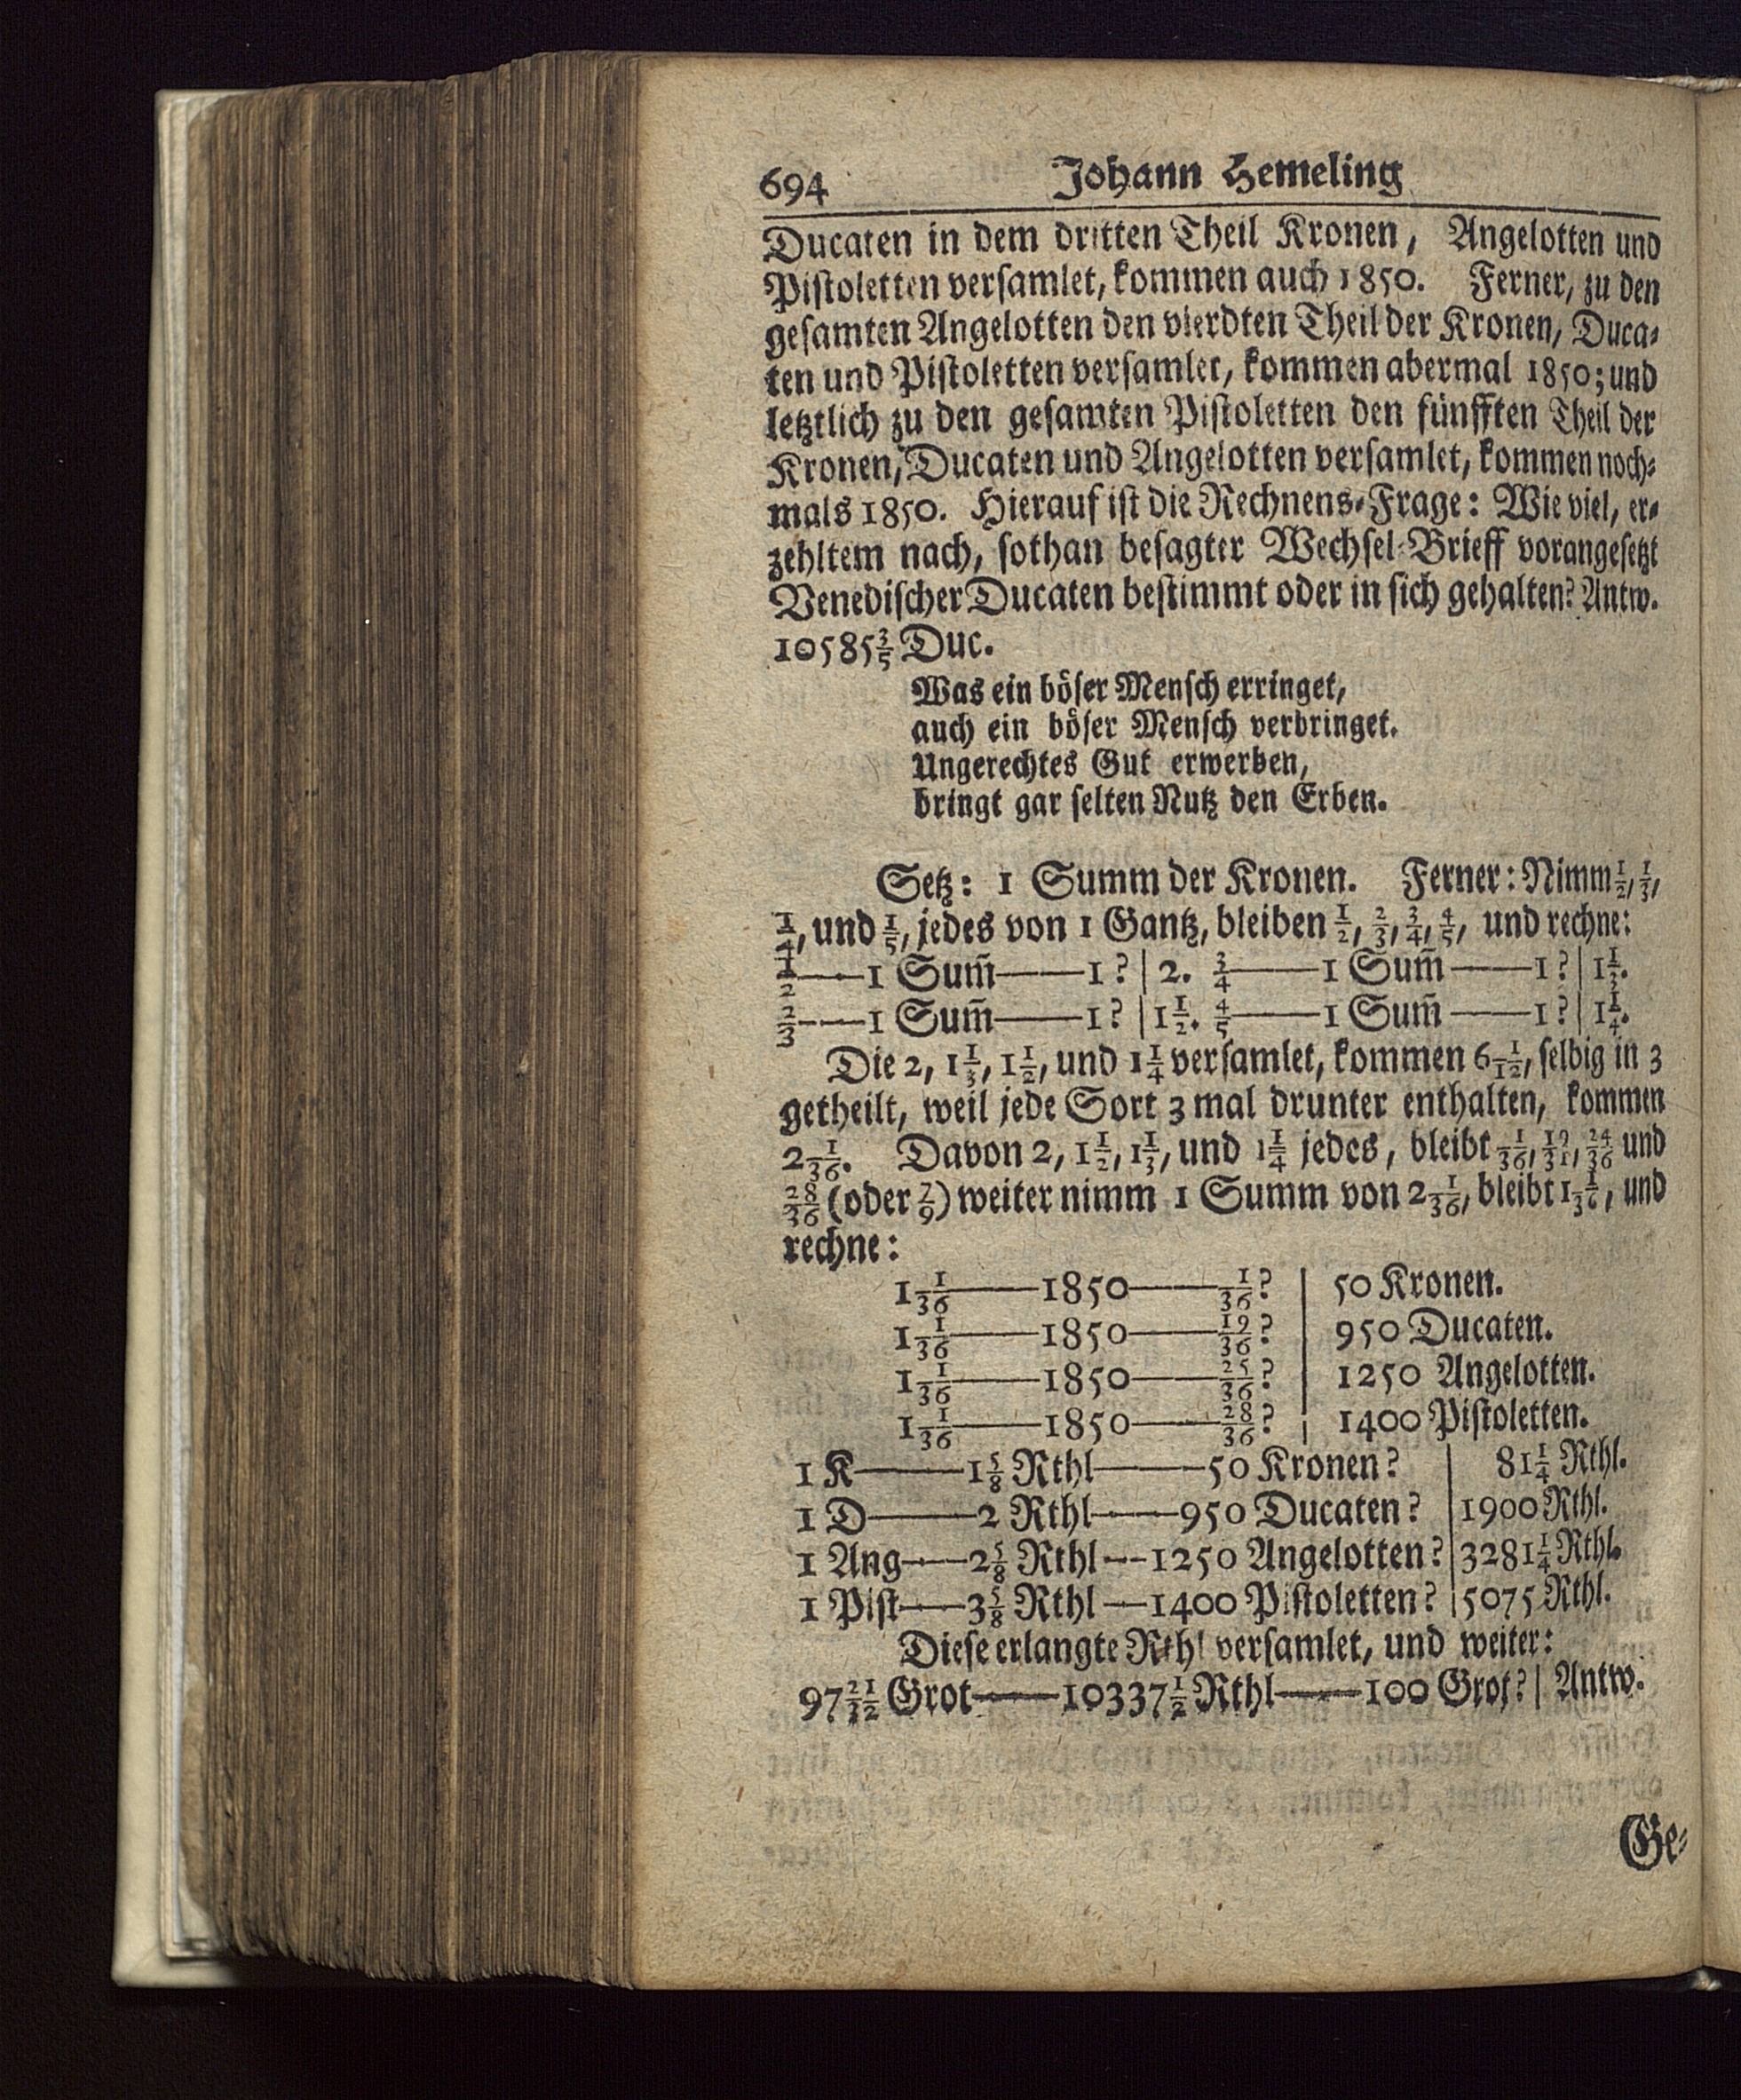 694 Johann Hemeling
Ducaten in dem dritten Theil Kronen, Angelotten und
Pistoletten versamlet, kommen auch 1850. Ferner, zu den
gesamten Angelotten den vierdten Theil der Kronen, Duca-
ten und Pistoletten versamlet, kommen abermal 1850; und
letztlich zu den gesamten Pistoletten den fünfften Theil der
Kronen, Ducaten und Angelotten versamlet, kommen noch-
mals 1850. Hierauf ist die Rechnens-Frage: Wie viel, er-
zehltem nach, sothan besagter Wechsel-Brieff vorangesetzt
Venedischer Ducaten bestimmt oder in sich gehalten? Antw.
10585 3/5 Duc.
Was ein böser Mensch erringet,
auch ein böser Mensch verbringet.
Ungerechtes Gut erwerben,
bringt gar selten Nutz den Erben.
Setz: 1 Summ der Kronen. Ferner: Nimm 1/2, 1/3,
1/4, und 1/5, jedes von 1 Gantz, bleiben 1/2, 2/3, 3/4, 4/5, und rechne:
1/2——1 Sum̃——1? | 2. 3/4——1 Sum̃——1? | 1 1/3.
2/3——1 Sum̃——1? | 1 1/2. 4/5——1 Sum̃——1? | 1 1/4.
Die 2, 1 1/3, 1 1/2, und 1 1/4 versamlet, kommen 6 1/12, selbig in 3
getheilt, weil jede Sort 3 mal drunter enthalten, kommen
2 1/36. Davon 2, 1 1/2, 1 1/3, und 1 1/4 jedes, bleibt 1/36, 19/31, 24/36 und
28/36 (oder 7/9) weiter nimm 1 Summ von 2 1/36, bleibt 1 1/36, und
rechne:
1 1/36——1850——1/36? | 50 Kronen.
1 1/36——1850——19/36? | 950 Ducaten.
1 1/36——1850——25/36? | 1250 Angelotten.
1 1/36——1850——28/36? | 1400 Pistoletten.
1 K——1 5/8 Rthl——50 Kronen? | 81 1/4 Rthl.
1 D——2 Rthl——950 Ducaten? | 1900 Rthl.
1 Ang——2 5/8 Rthl——1250 Angelotten? | 3281 1/4 Rthl.
1 Pist——3 5/8 Rthl—1400 Pistoletten? | 5075 Rthl.
Diese erlangte Rthl versamlet, und weiter:
97 21/32 Grot——10337 1/2 Rthl——100 Grot? | Antw.
Ge-